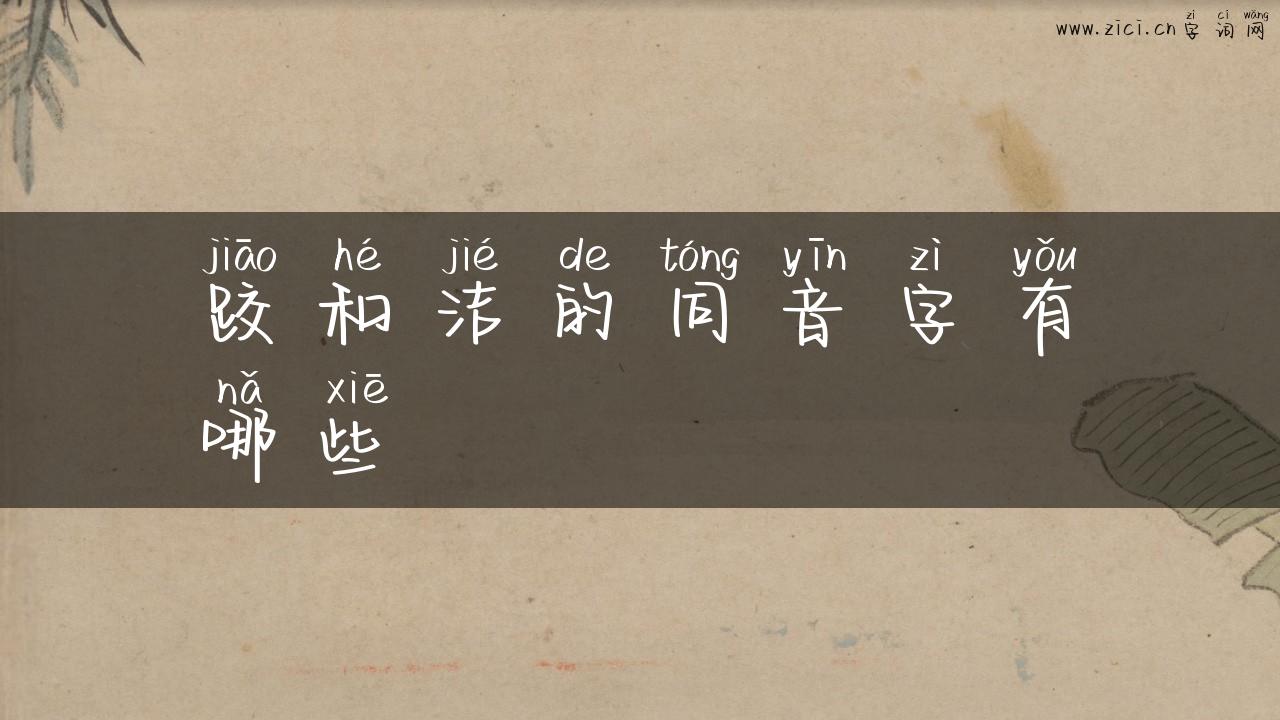 zì cí wǎng
www.zici.cn 字词网
jiāo hé jié de tóng yīn zì yǒu
跤和洁的同音字有
nǎ xiē
哪些